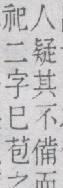 人疑其不備而
祀二字巳苞之